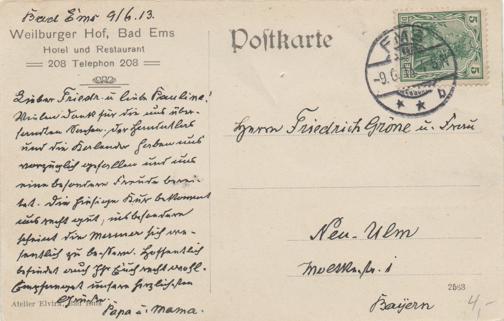 Bad Ems 9/6.13.
Weilburger Hof, Bad Ems
Hotel und Restaurant
208 Telephon 208
Postkarte
5 5
EMS
-9.6.
* * b
Lieber Friedr. u. liebe Pauline!
Vielen Dank für die uns über-
sandten Karten. Der
und die haben uns
vorzüglich gefallen und uns
eine besondere Freude berei-
tet. Die hiesige Kur bekommt
uns recht gut, insbesondere
scheint die Mamma sich we-
sentlich zu bessern. Hoffentlich
befindet auch Ihr Euch recht wohl.
Empfanget unsere herzlichsten
Grüße.
Papa u. Mama.
Herrn Friedrich Gröne u. Frau
Neu-Ulm
Moltkestr. 1
Bayern
2563
4,-
Atelier Elvira, Bad Ems